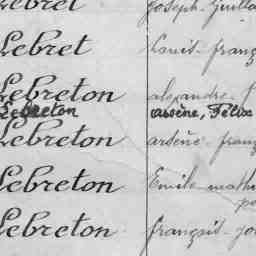 Lebret Joseph-Guilla
Lebret Louis-franç
Lebreton alexandre-f
Lebreton arsène, Félix
Lebreton arsène-franç
Lebreton Emile-mathu
Lebreton françois-jo